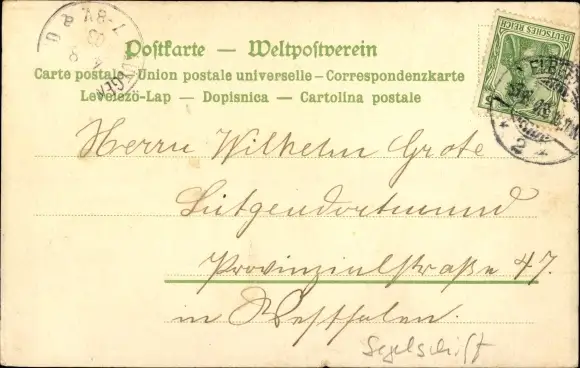 Postkarte — Weltpostverein
Carte postale - Union postale universelle - Correspondenzkarte
Levelezö-Lap — Dopisnica — Cartolina postale
DEUTSCHES REICH
Herrn Wilhelm Grote
Lütgendortmund
Provinzialstraße 47.
in Westfalen.
Segelschiff